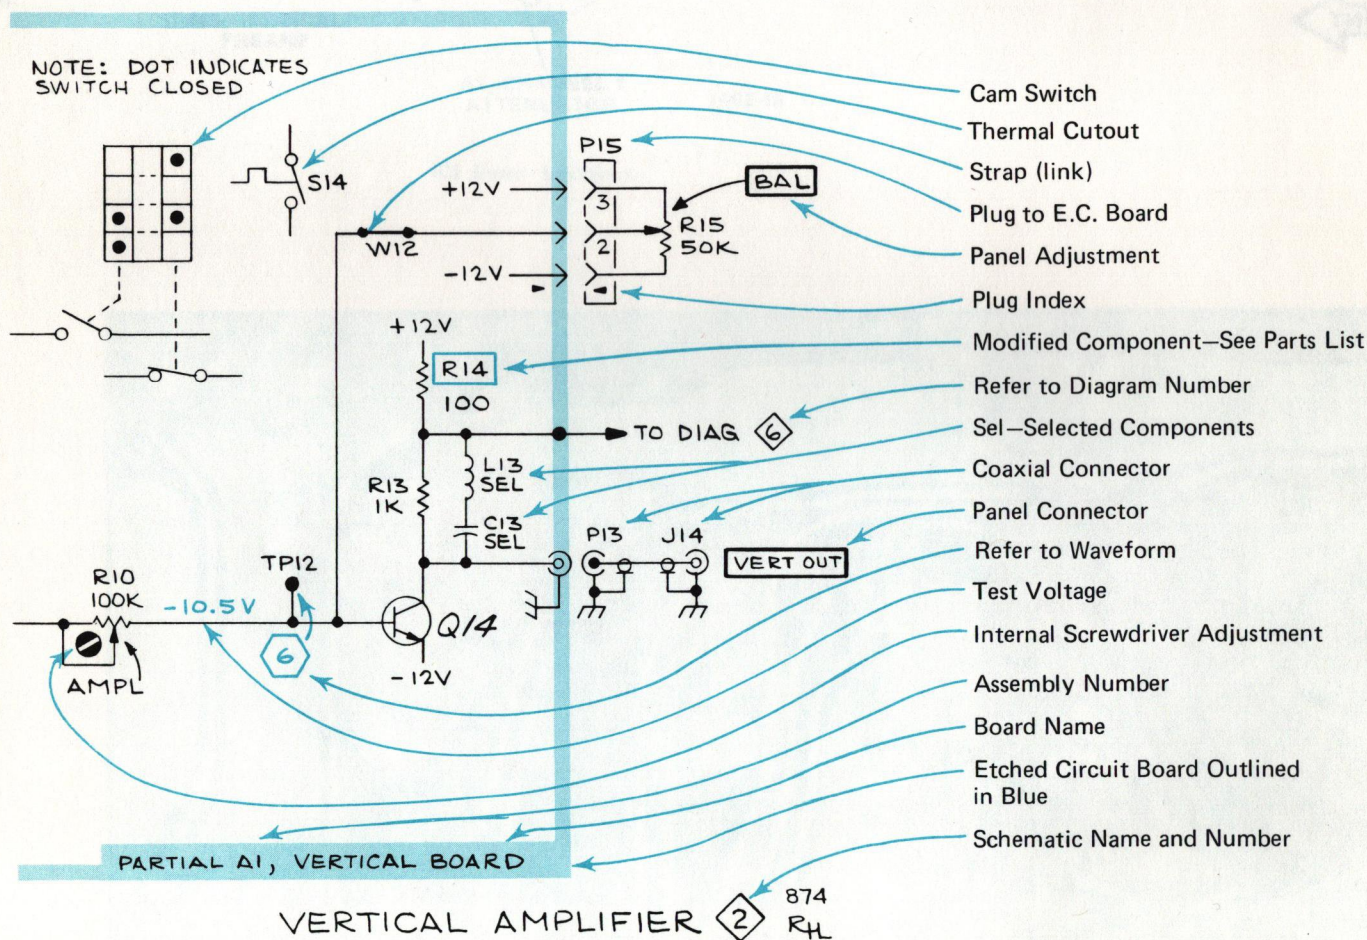 NOTE: DOT INDICATES
SWITCH CLOSED
S14
+12V
W12
-12V
P15
3
2
BAL
R15
50K
+12V
R14
100
TO DIAG 6
L13
SEL
R13
1K
C13
SEL
P13
J14
VERT OUT
TP12
R10
100K
-10.5V
6
Q14
AMPL
-12V
PARTIAL A1, VERTICAL BOARD
VERTICAL AMPLIFIER 2
874
RHL
Cam Switch
Thermal Cutout
Strap (link)
Plug to E.C. Board
Panel Adjustment
Plug Index
Modified Component—See Parts List
Refer to Diagram Number
Sel—Selected Components
Coaxial Connector
Panel Connector
Refer to Waveform
Test Voltage
Internal Screwdriver Adjustment
Assembly Number
Board Name
Etched Circuit Board Outlined
in Blue
Schematic Name and Number